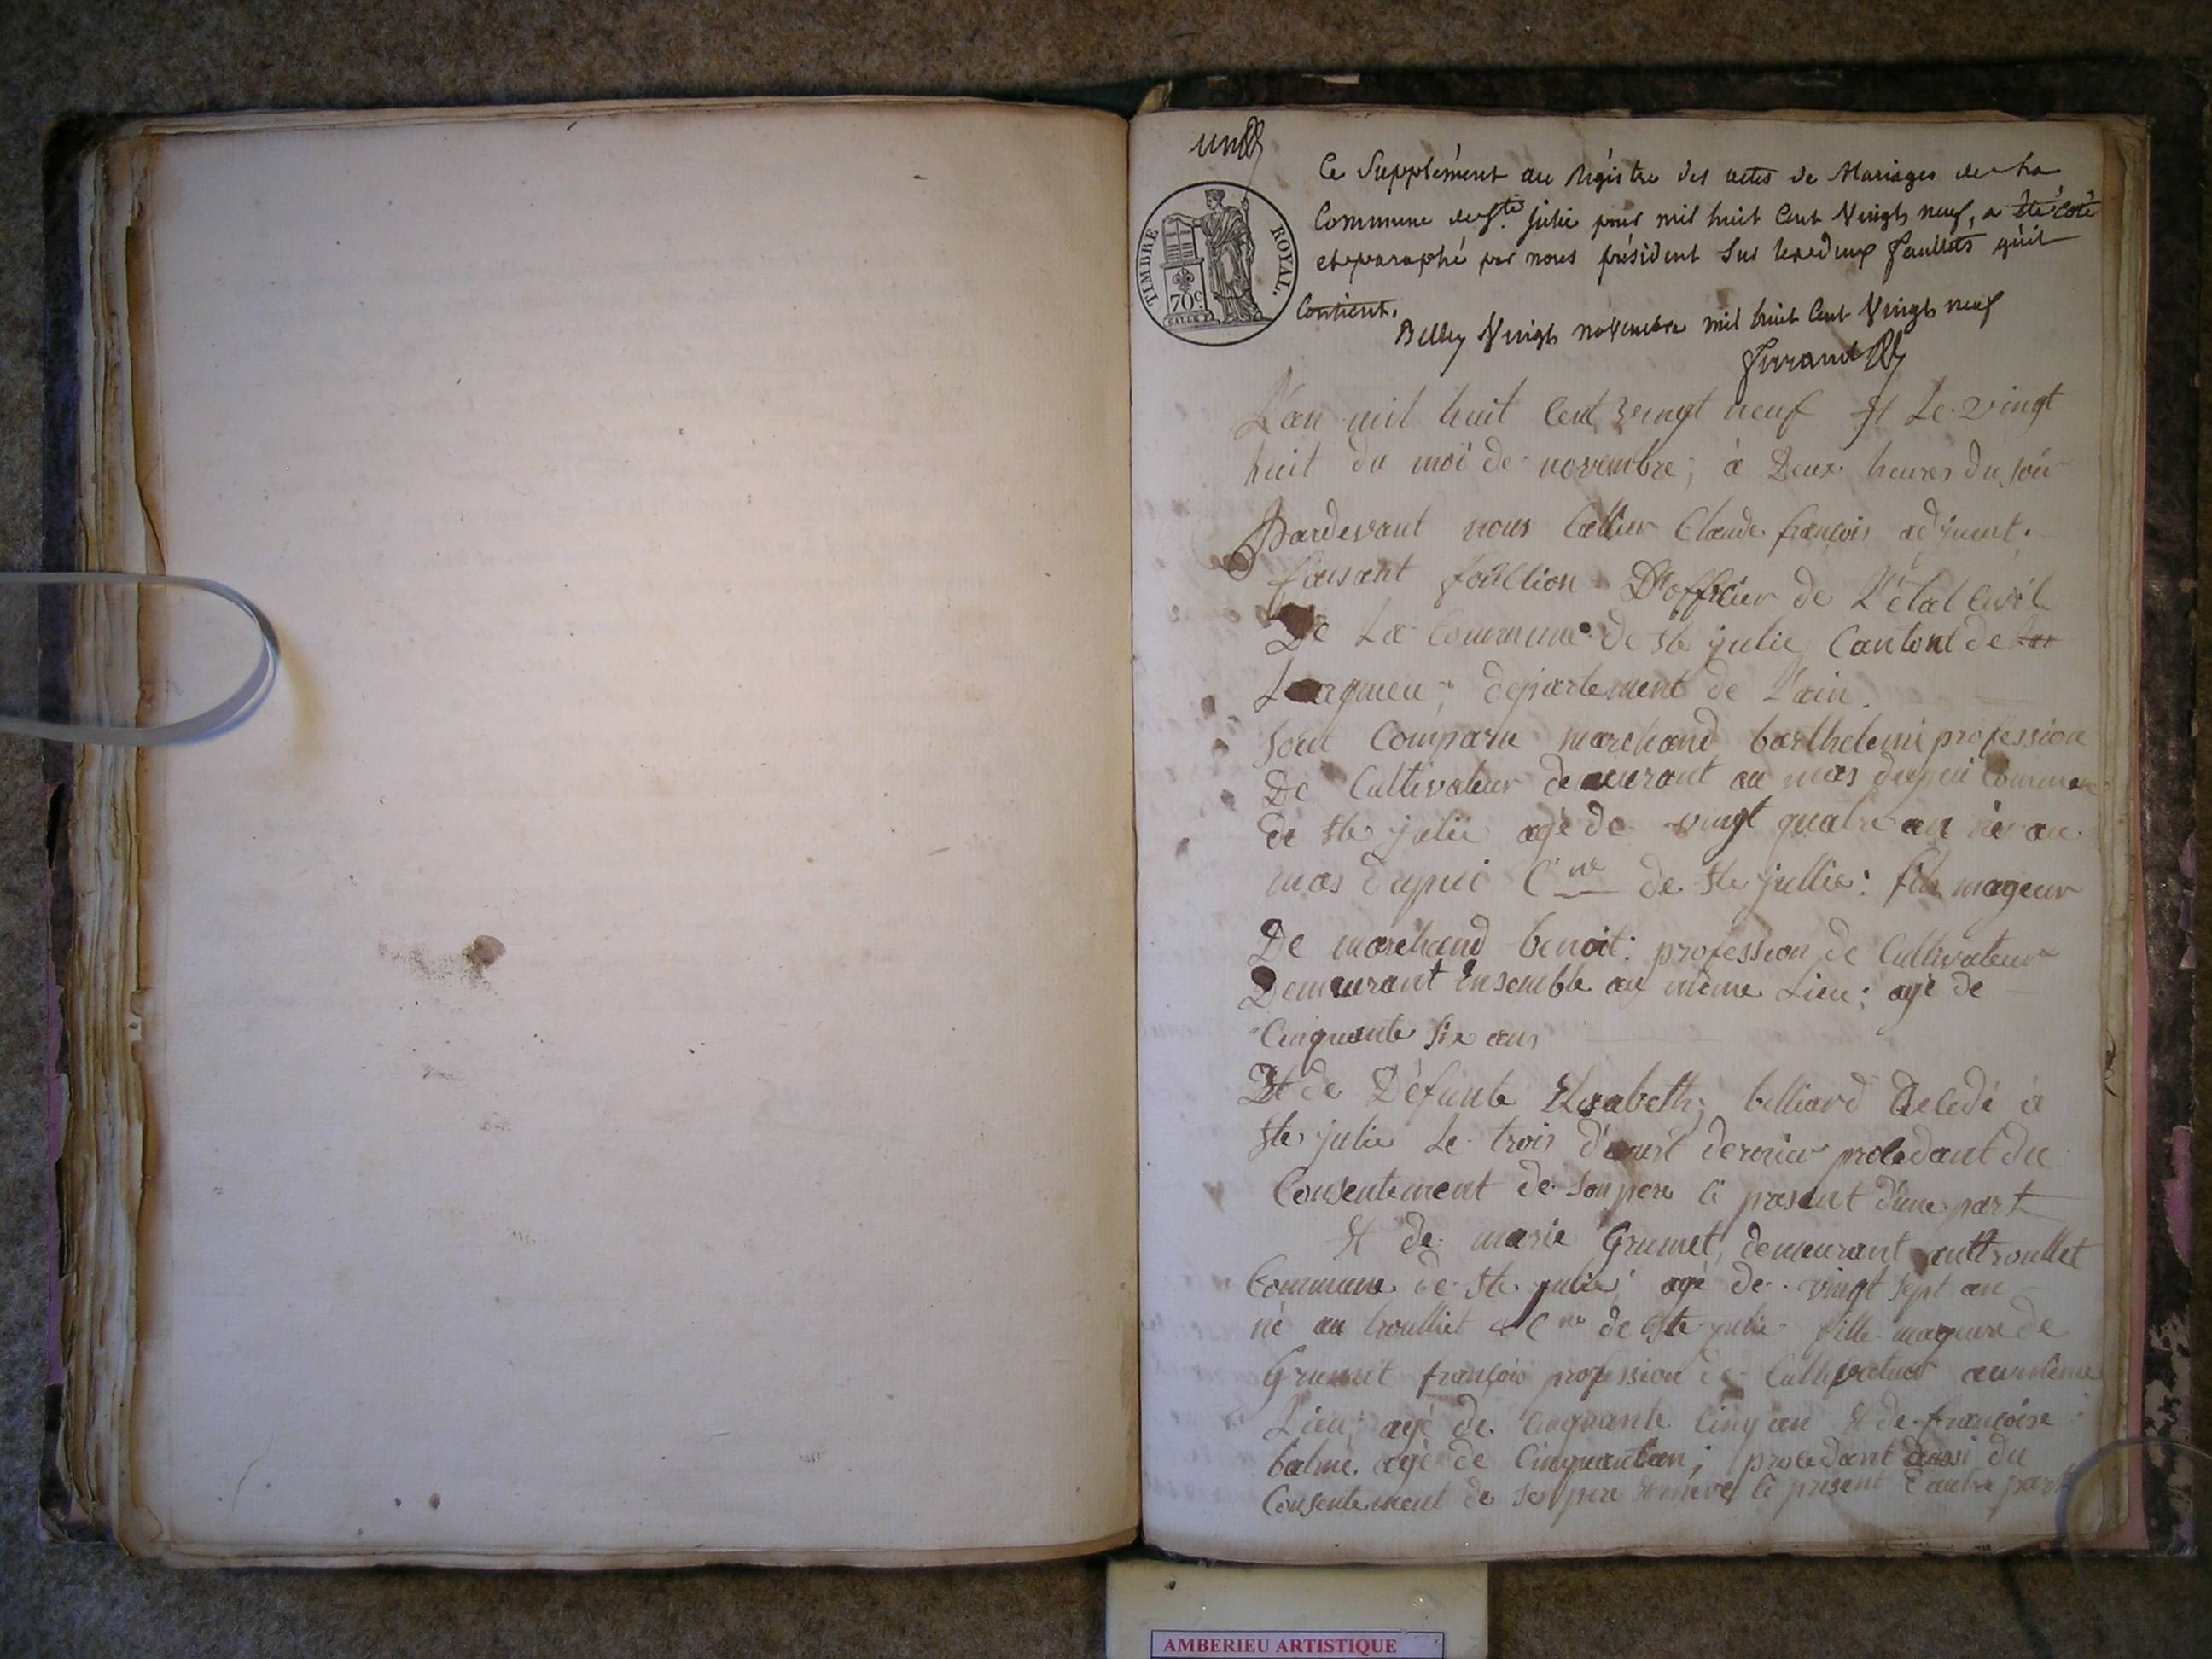 un
Ce Supplément au Régistre des actes de Mariages de la
Commune de Ste. Julie pour mil huit Cent Vingt neuf, a été coté
et paraphé par nous président Sur les deux feuillets qu'il
Contient.
Belley Vingt novembre mil huit Cent Vingt neuf
TIMBRE ROYAL.
70c.
L'an mil huit Cent vingt neuf Et Le vingt
huit du moi de novembre, à Deux heures du soir
Pardevant nous Claude françois adjoint
faisant D'officier de L'état Civil
De La Commune de Ste julie Cantont de
Lagnieu, departement de L'ain.
Sont Comparu marchand barthelemi profession
De Cultivateur demeurant au mas dupui Commune
de Ste julie agé de vingt quatre an né au
mas dupui Cne de Ste jullie: fils mageur
De marchand benoit: profession de Cultivateur
Demeurant Ensemble au même Lieu; agé de
Cinquante Six ans
Et de Défunte Elisabeth, billiard Decedé à
Ste julie Le trois d'aout dernier procedant du
Consentement de Son pere Ci present d'une part
Et de marie Grumet, demeurant
Commune de Ste julie; agé de vingt Sept an
né au troulliet Cne de Ste julie fille mageure de
Grumet françois profession de Cultivateur au même
Lieu; agé de Cinquante Cinq an Et de françoise
balme agé de Cinquantan; procedant aussi du
Consentement de Se pere et mere Ci present d'autre part
AMBERIEU ARTISTIQUE